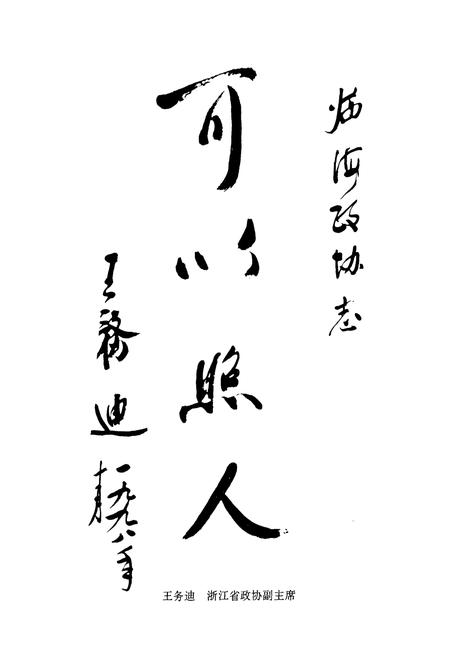 临海政协志
可以照人
王務迪
一九九八年
王务迪 浙江省政协副主席